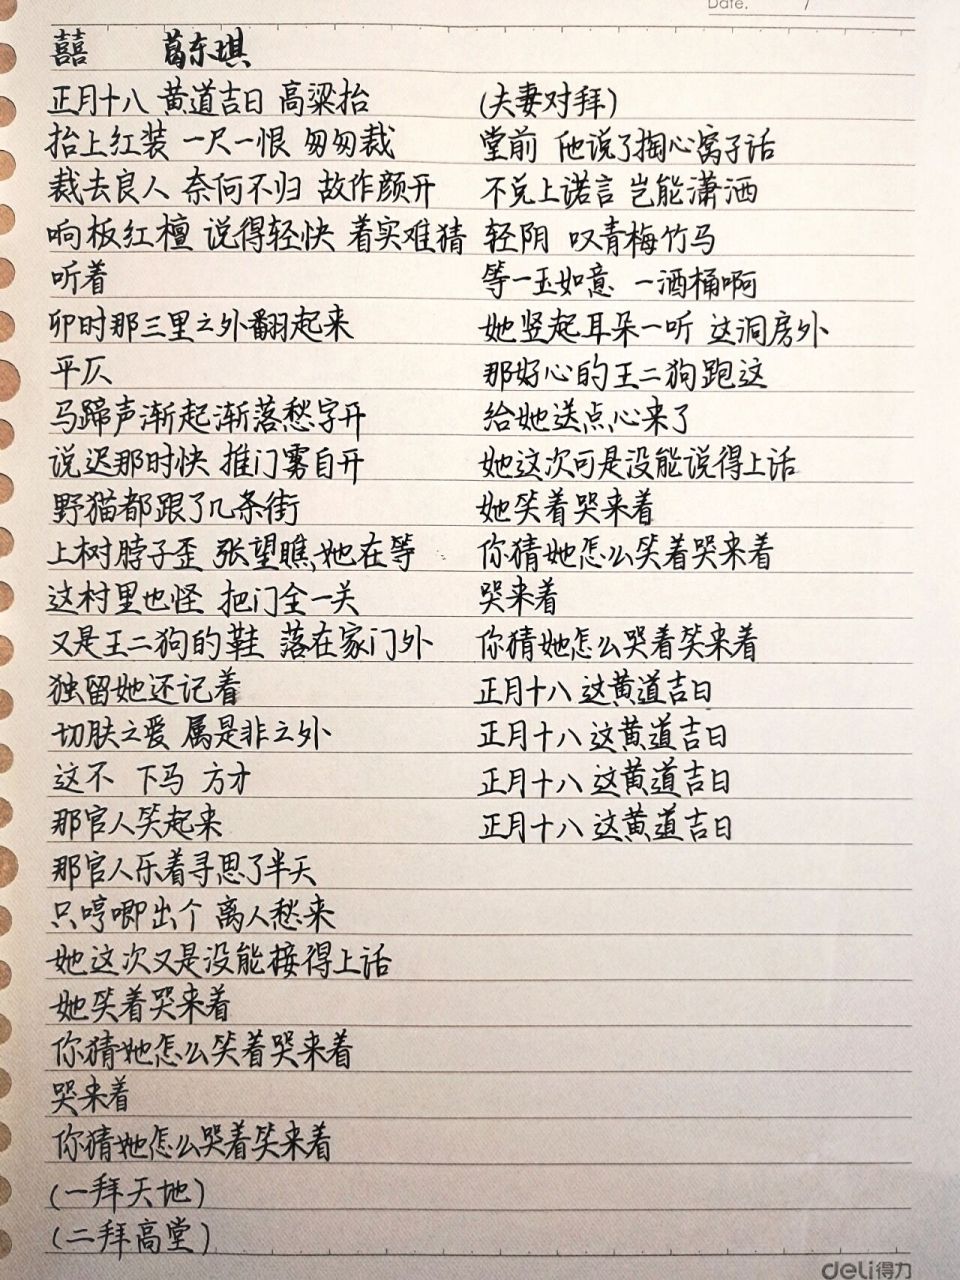 Date. /
囍 葛东琪
正月十八 黄道吉日 高粱抬
抬上红装 一尺一恨 匆匆裁
裁去良人 奈何不归 故作颜开
响板红檀 说得轻快 着实难猜
听着
卯时那三里之外翻起来
平仄
马蹄声渐起渐落愁字开
说迟那时快 推门雾自开
野猫都跟了几条街
上树脖子歪 张望瞧她在等
这村里也怪 把门全一关
又是王二狗的鞋 落在家门外
独留她还记着
切肤之爱 属是非之外
这不 下马 方才
那官人笑起来
那官人乐着寻思了半天
只哼唧出个 离人愁来
她这次又是没能接得上话
她笑着哭来着
你猜她怎么笑着哭来着
哭来着
你猜她怎么哭着笑来着
(一拜天地)
(二拜高堂)
(夫妻对拜)
堂前 他说了掏心窝子话
不兑上诺言 岂能潇洒
轻阴 叹青梅竹马
等一玉如意 一酒桶啊
她竖起耳朵一听 这洞房外
那好心的王二狗跑这
给她送点心来了
她这次可是没能说得上话
她笑着哭来着
你猜她怎么笑着哭来着
哭来着
你猜她怎么哭着笑来着
正月十八 这黄道吉日
正月十八 这黄道吉日
正月十八 这黄道吉日
正月十八 这黄道吉日
deli得力